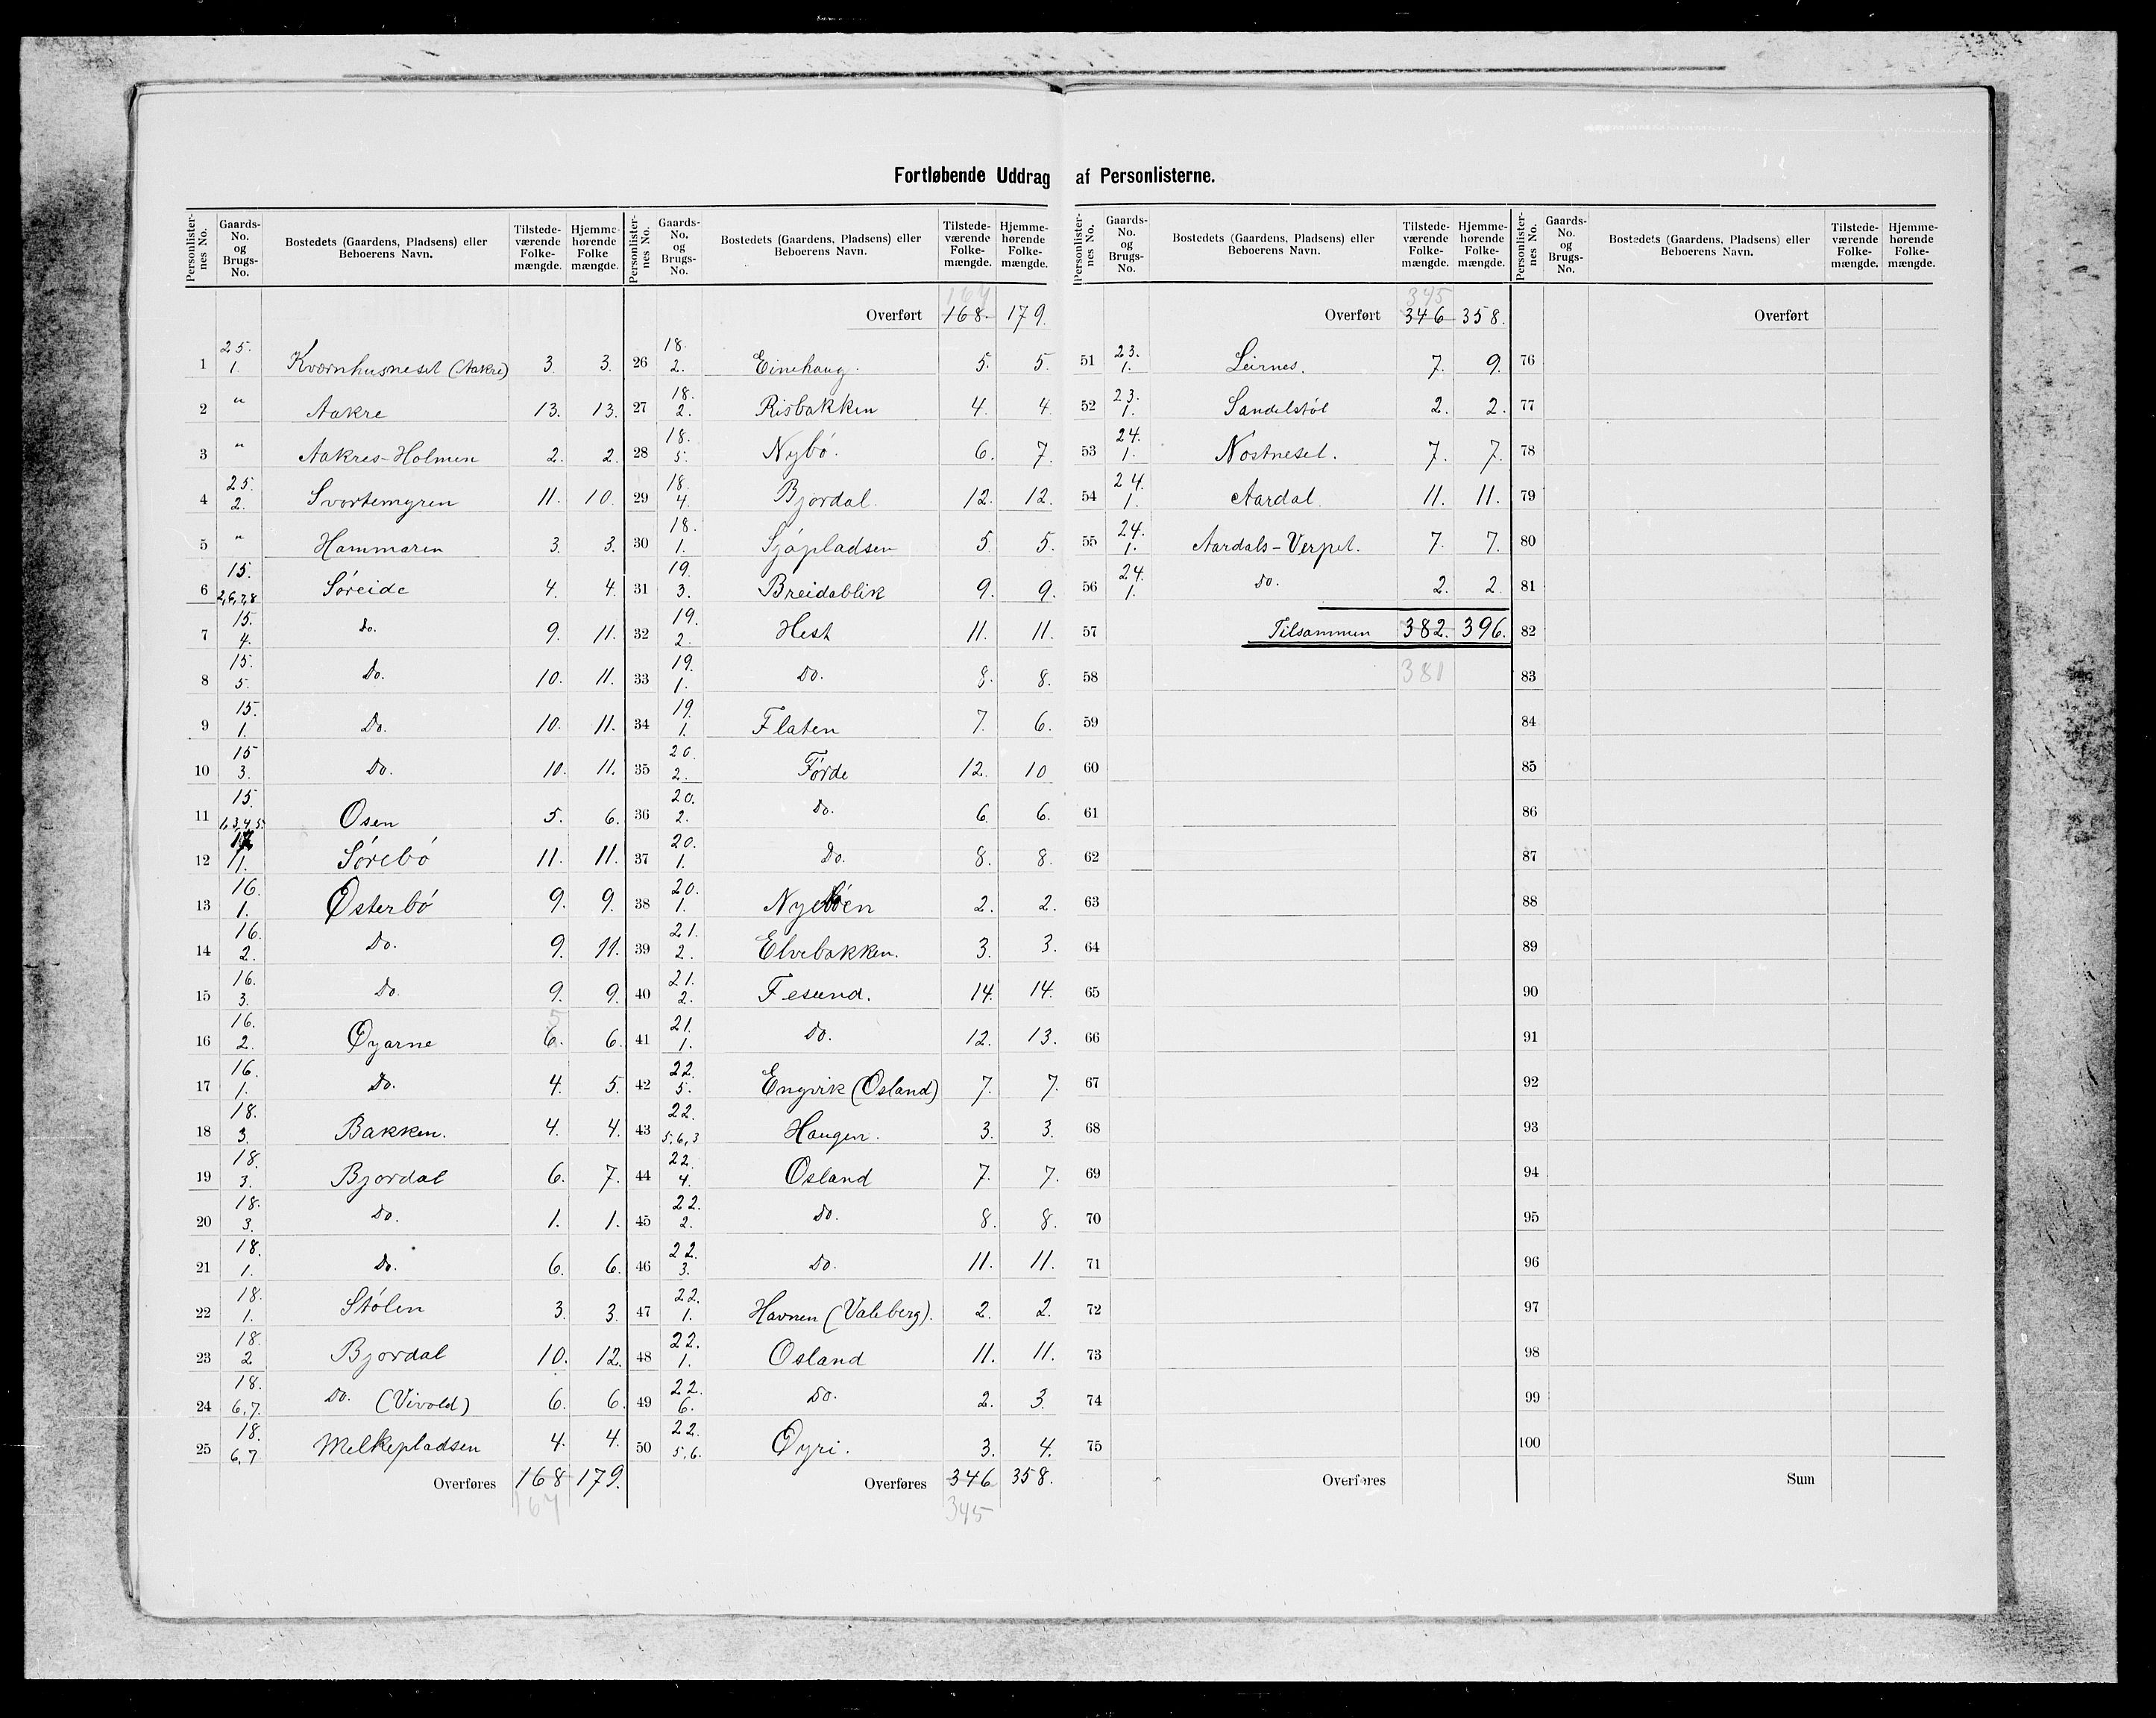 Fortløbende Uddrag af Personlisterne.
Personlister-nes No. | Gaards-No. og Brugs-No. | Bostedets (Gaardens, Pladsens) eller Beboerens Navn. | Tilstede-værende Folke-mængde. | Hjemme-hørende Folke mængde.
1 | 25. 1. | Kværnhusneset (Aakre) | 3. | 3.
2 | " | Aakre | 13. | 13.
3 | " | Aakres-Holmen | 2. | 2.
4 | 25. 2. | Svortemyren | 11. | 10.
5 | " | Hammaren | 3. | 3.
6 | 15. 2,6,7,8 | Søreide | 4. | 4.
7 | 15. 4. | Do. | 9. | 11.
8 | 15. 5. | Do. | 10. | 11.
9 | 15. 1. | Do. | 10. | 11.
10 | 15 3. | Do. | 10. | 11.
11 | 15. 1,3,4,5. | Osen | 5. | 6.
12 | 17. 1. | Sørebø | 11. | 11.
13 | 16. 1. | Østerbø | 9. | 9.
14 | 16. 2. | Do. | 9. | 11.
15 | 16. 3. | Do. | 9. | 9.
16 | 16. 2. | Øyarne | 5 6. | 6.
17 | 16. 1. | Do. | 4. | 5.
18 | 18. 3. | Bakken. | 4. | 4.
19 | 18. 3. | Bjordal | 6. | 7.
20 | 18. 3. | Do. | 1. | 1.
21 | 18. 1. | Do. | 6. | 6.
22 | 18. 1. | Stølen | 3. | 3.
23 | 18. 2 | Bjordal | 10. | 12.
24 | 18. 6,7. | Do. (Vivold) | 6. | 6.
25 | 18. 6,7 | Melkepladsen | 4. | 4.
Overføres | 168 | 179.
167
Personlister-nes No. | Gaards-No. og Brugs-No. | Bostedets (Gaardens, Pladsens) eller Beboerens Navn. | Tilstede-værende Folke-mængde. | Hjemme-hørende Folke-mængde.
167
Overført | 168. | 179.
26 | 18. 2. | Einehaug. | 5. | 5.
27 | 18. 2. | Risbakken | 4. | 4.
28 | 18. 5. | Nybø. | 6. | 7.
29 | 18. 4. | Bjordal. | 12. | 12.
30 | 18. 1. | Sjøpladsen | 5 | 5.
31 | 19. 3. | Breidablik | 9. | 9.
32 | 19. 2. | Hest | 11. | 11.
33 | 19. 1. | Do. | 8. | 8.
34 | 19. 1. | Flaten | 7. | 6.
35 | 20. 2. | Førde | 12. | 10
36 | 20. 2. | Do. | 6. | 6.
37 | 20. 1. | Do. | 8. | 8.
38 | 20. 1. | Nyebøen | 2. | 2.
39 | 21. 2. | Elvebakken. | 3. | 3.
40 | 21. 2. | Fesund. | 14. | 14.
41 | 21. 1. | Do. | 12. | 13.
42 | 22. 5. | Engvik (Osland) | 7. | 7.
43 | 22. 5,6,3 | Haugen. | 3. | 3.
44 | 22. 4. | Osland | 7. | 7.
45 | 22. 2. | Do. | 8. | 8.
46 | 22. 3. | Do. | 11. | 11.
47 | 22. 1. | Havnen (Valeberg). | 2. | 2.
48 | 22. 1. | Osland | 11. | 11.
49 | 22. 6. | Do. | 2. | 3.
50 | 22. 5,6. | Øyri. | 3. | 4.
Overføres | 346 | 358.
345
Personlister-nes No. | Gaards-No. og Brugs-No. | Bostedets (Gaardens, Pladsens) eller Beboerens Navn. | Tilstede-værende Folke-mængde. | Hjemme-hørende Folke-mængde.
345
Overført | 346 | 358.
51 | 23. 1. | Leirnes. | 7. | 9.
52 | 23. 1. | Sandelstøl | 2. | 2.
53 | 24. 1. | Nostneset. | 7. | 7.
54 | 24. 1. | Aardal | 11. | 11.
55 | 24. 1. | Aardals-Verpet. | 7. | 7.
56 | 24. 1. | Do. | 2. | 2.
57 | Tilsammen | 382. | 396.
58 | 381
59
60
61
62
63
64
65
66
67
68
69
70
71
72
73
74
75
Overføres
Personlister-nes No. | Gaards-No. og Brugs-No. | Bostedets (Gaardens, Pladsens) eller Beboerens Navn. | Tilstede-værende Folke-mængde. | Hjemme-hørende Folke-mængde.
Overført
76
77
78
79
80
81
82
83
84
85
86
87
88
89
90
91
92
93
94
95
96
97
98
99
100
Sum